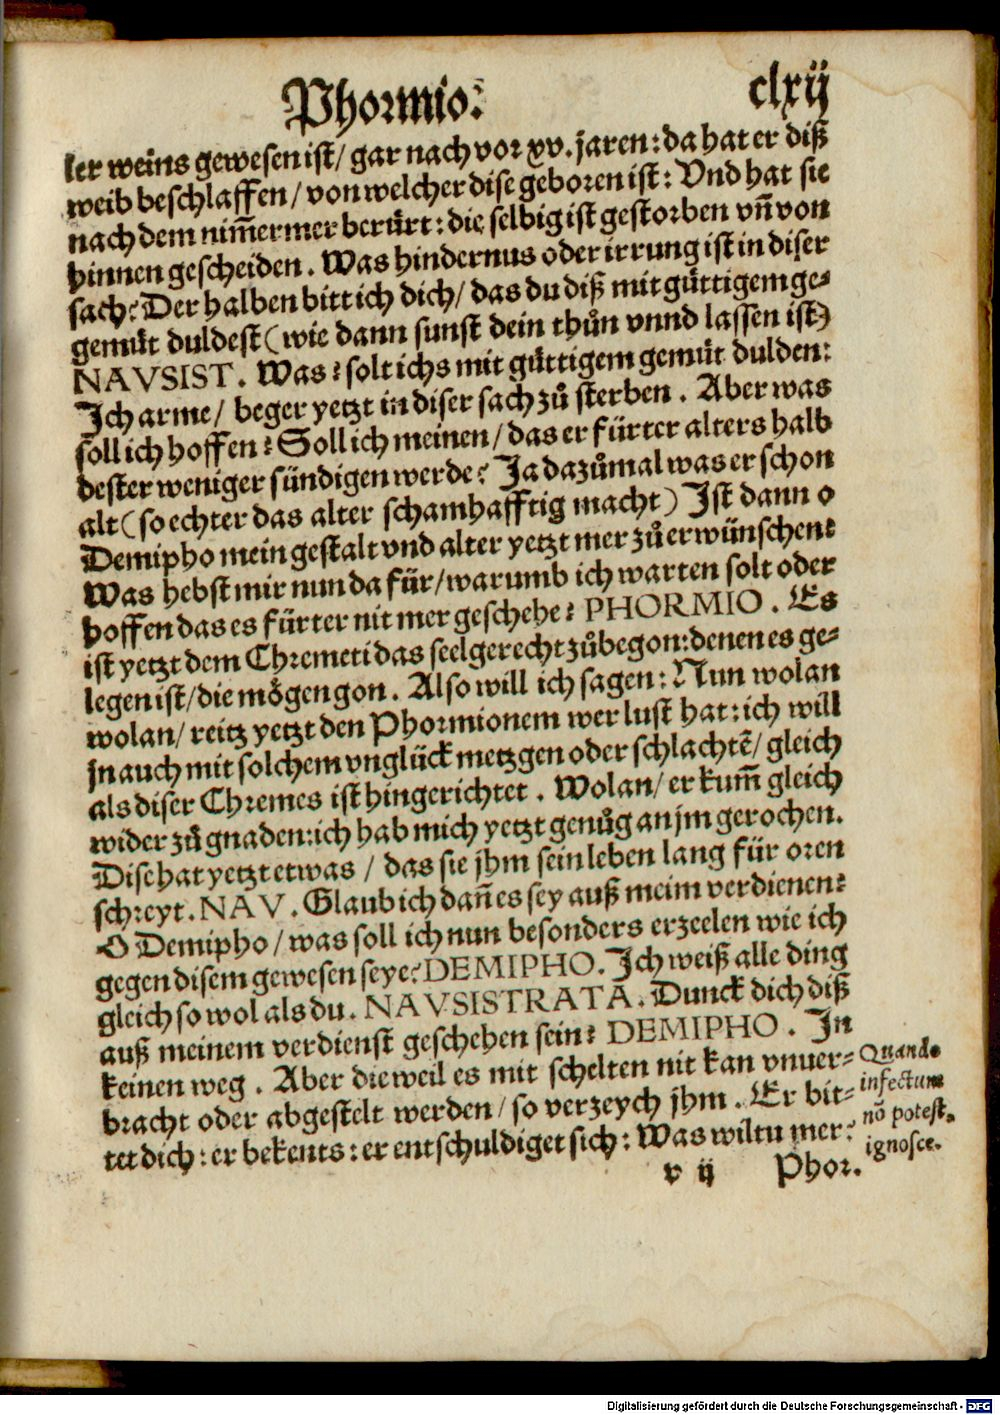 Phormio.
clxij
ler weins gewesen ist/ gar nach vor xv. jaren: da hat er diß
weib beschlaffen/ von welcher dise geboren ist: Vnd hat sie
nach dem nim̃ermer berůrt: die selbig ist gestorben vñ von
hinnen gescheiden. Was hindernus oder irrung ist in diser
sach? Der halben bitt ich dich/ das du diß mit gůttigem ge-
gemůt duldest (wie dann sunst dein thůn vnnd lassen ist)
NAVSIST. Was? solt ichs mit gůttigem gemůt dulden:
Ich arme/ beger yetzt in diser sach zů sterben. Aber was
soll ich hoffen? Soll ich meinen/ das er fürter alters halb
dester weniger sündigen werde? Ja dazůmal was er schon
alt (so echter das alter schamhafftig macht) Ist dann o
Demipho mein gestalt vnd alter yetzt mer zů erwünschen?
Was hebst mir nun da für/ warumb ich warten solt oder
hoffen das es fürter nit mer geschehe? PHORMIO. Es
ist yetzt dem Chremeti das seelgerecht zůbegon: denen es ge-
legen ist/ die mögen gon. Also will ich sagen: Nun wolan
wolan/ reitz yetzt den Phormionem wer lust hat: ich will
jn auch mit solchem vnglück metzgen oder schlachtẽ/ gleich
als diser Chremes ist hingerichtet. Wolan/ er kum̃ gleich
wider zů gnaden: ich hab mich yetzt genůg an jm gerochen.
Dise hat yetzt etwas/ das sie jhm sein leben lang für oren
schreyt. NAV. Glaub ich dañ es sey auß meim verdienen?
O Demipho/ was soll ich nun besonders erzeelen wie ich
gegen disem gewesen seye? DEMIPHO. Ich weiß alle ding
gleich so wol als du. NAVSISTRATA. Dunck dich diß
auß meinem verdienst geschehen sein? DEMIPHO. In
keinen weg. Aber dieweil es mit schelten nit kan vnuer-
bracht oder abgestelt werden/ so verzeych jhm. Er bit-
tet dich: er bekents: er entschuldiget sich: Was wiltu mer:
Quando
infectum
nõ potest,
ignosce.
v ij
Phor.
Digitalisierung gefördert durch die Deutsche Forschungsgemeinschaft - DFG